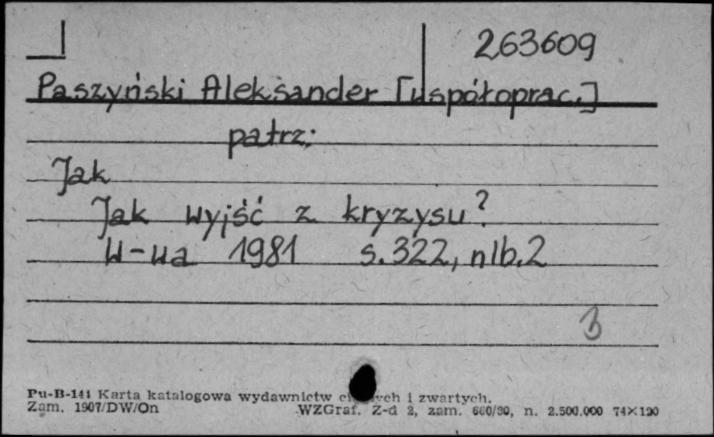 263609
Paszyński Aleksander [współoprac.]
patrz:
Jak
Jak wyjść z kryzysu?
W-wa 1981 s.322, nlb.2
3
Pu-B-141 Karta katalogowa wydawnictw i zwartych.
Zam. 1907/DW/On WZGraf. Z-d 2, zam. 660/80, n. 2.500.000 74×120